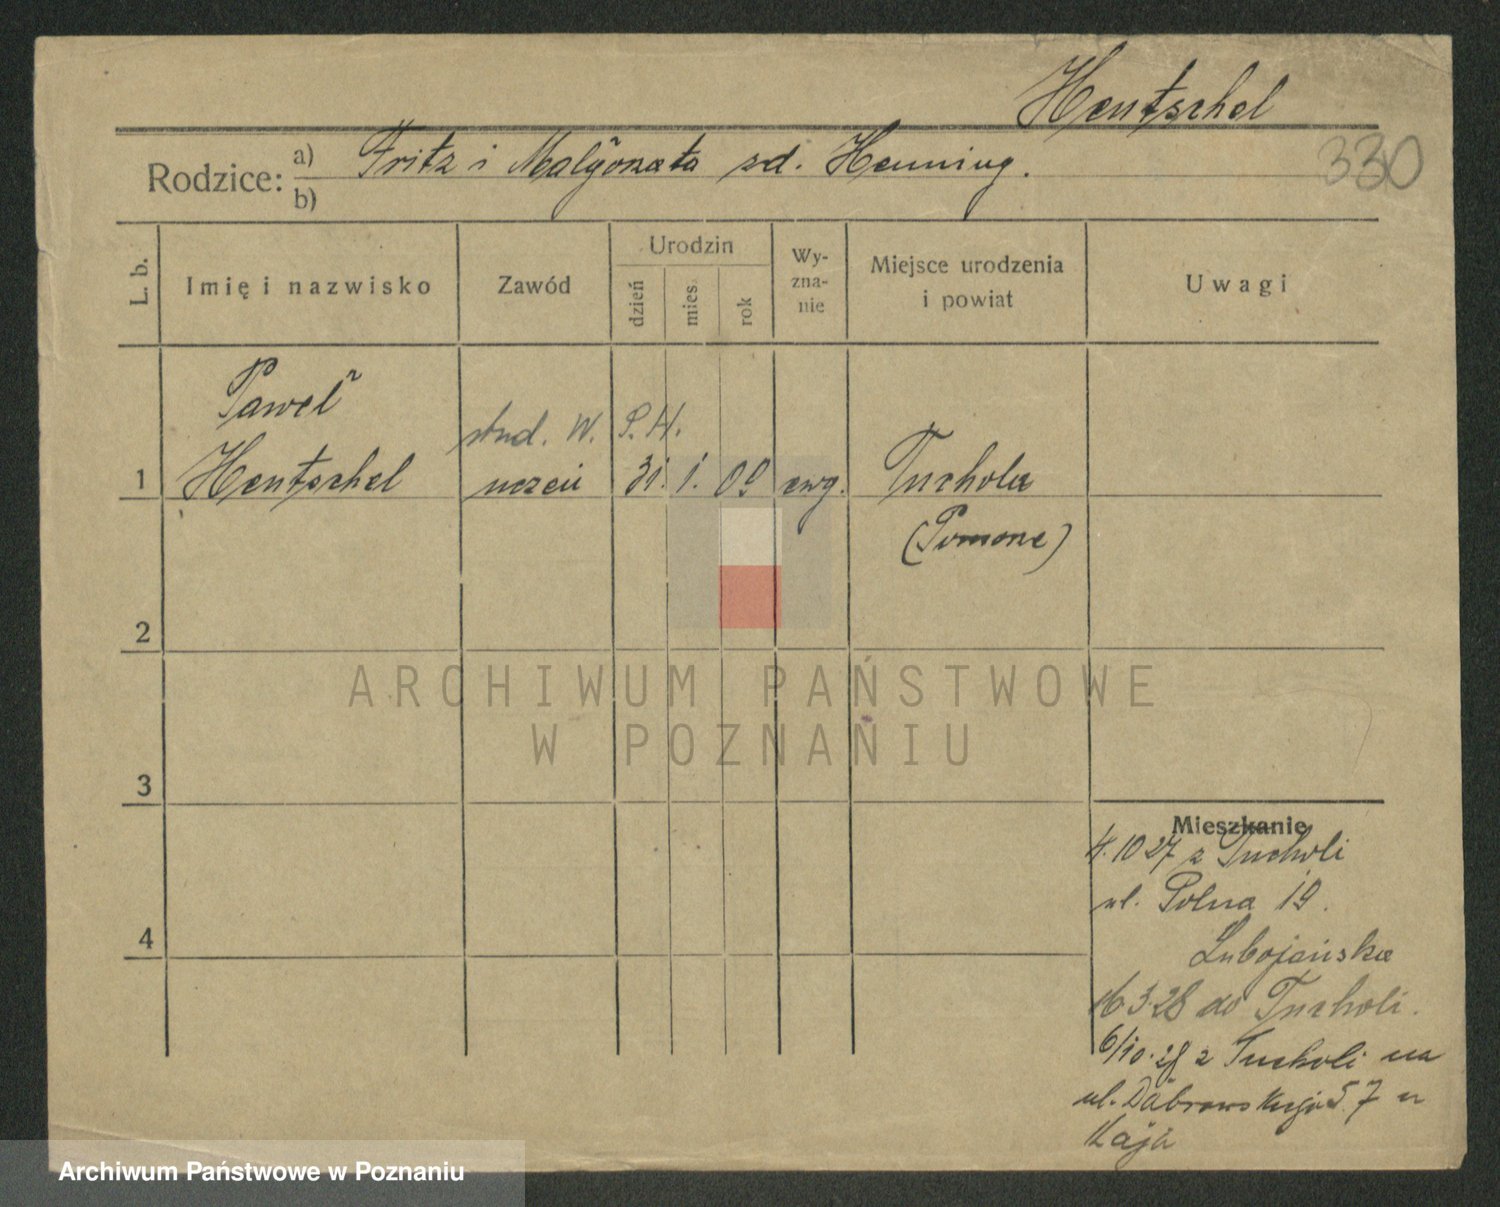 Hentschel
330
Rodzice: a) Fritz i Małgorzata zd. Henning.
b)
L. b.
Imię i nazwisko
Zawód
Urodzin
dzień
mies.
rok
Wy-
zna-
nie
Miejsce urodzenia
i powiat
Uwagi
Paweł
stud. W. S. H.
1 Hentschel uczeń 31. 1. 09 ewg. Tuchola
(Pomorze)
2
3
4
ARCHIWUM PAŃSTWOWE
W POZNANIU
Mieszkanie
4.10 27 z Tucholi
ul. Polna 19.
16 3.28 do Tucholi.
6/10.28 z Tucholi na
ul. Dąbrowskiego 57 u
Archiwum Państwowe w Poznaniu